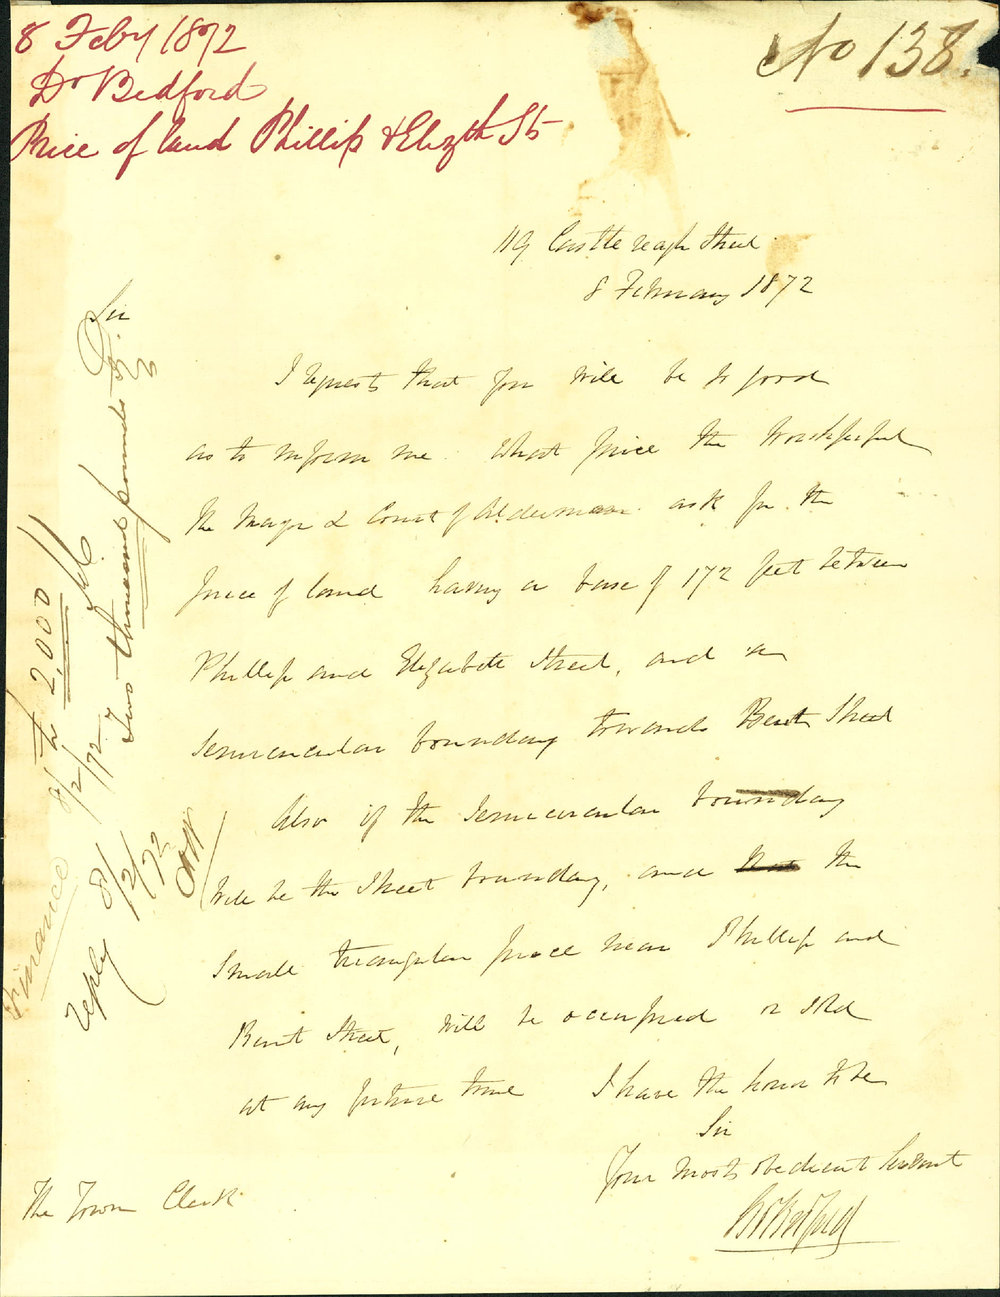 8 Feby 1872
Dr Bedford
Price of land Phillip & Elizth St
No 138.
119 Castlereagh Street
8 February 1872
Sir
I request that you will be so good
as to inform me what price the Worshipful
the Mayor & Court of Aldermen ask for the
piece of land having a base of 172 feet between
Phillip and Elizabeth Street, and a
semicircular boundary towards Bent Street
Also if the semicircular boundary
will be the Street boundary, and the
small triangular piece near Phillip and
Bent Street, will be occupied or sold
at any future time I have the honor to be
Sir
Your most obedient Servant
The Town Clerk
Finance 8/2/72
£2,000
Two thousand pounds
reply 8/2/72